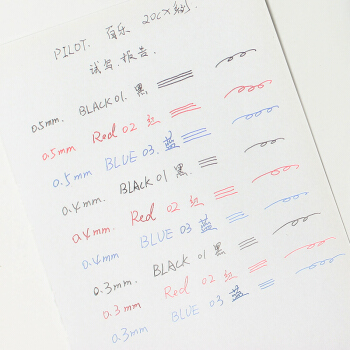 PILOT. 百乐 20CX系列
试写.报告.
0.5mm. BLACK 01. 黑
0.5mm Red 02 红
0.5mm BLUE 03. 蓝
0.4mm. BLACK 01 黑.
0.4mm Red 02 红
0.4mm BLUE 03 蓝
0.3mm. BLACK 01 黑
0.3mm Red 02 红
0.3mm BLUE 03 蓝